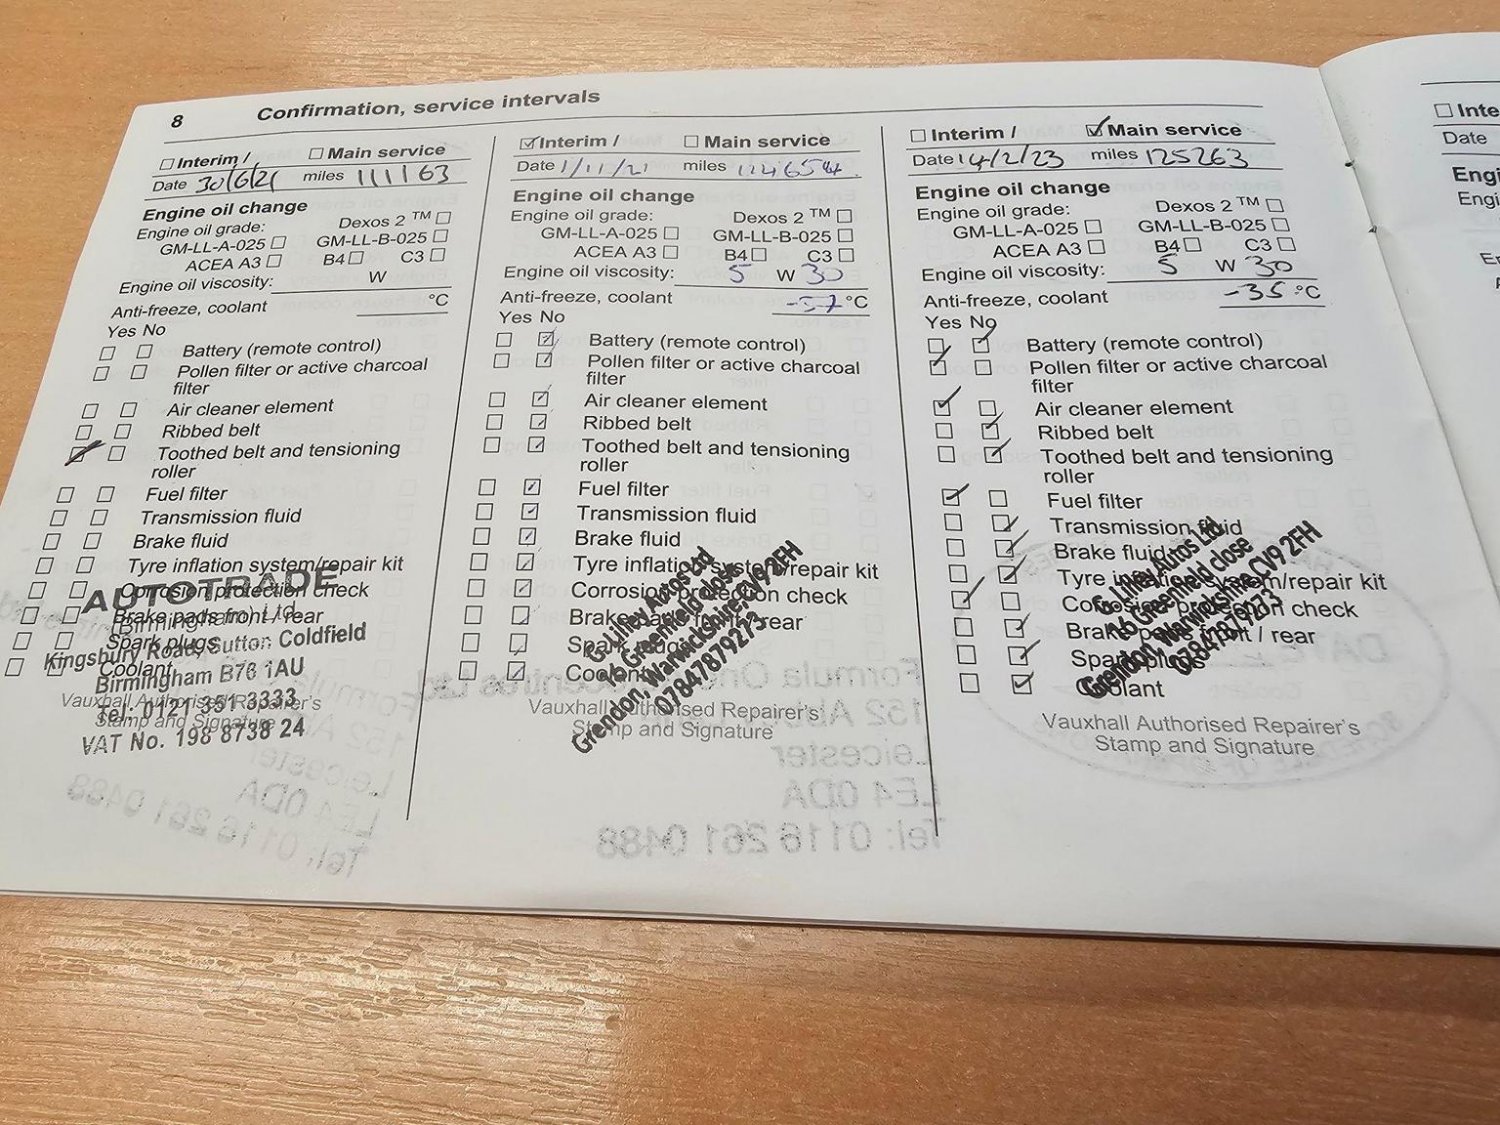 8 Confirmation, service intervals
Interim / Main service
Date 30/6/21 miles 111163
Engine oil change
Engine oil grade: Dexos 2 TM
GM-LL-A-025 GM-LL-B-025
ACEA A3 B4 C3
Engine oil viscosity: W
Anti-freeze, coolant °C
Yes No
Battery (remote control)
Pollen filter or active charcoal
filter
Air cleaner element
Ribbed belt
Toothed belt and tensioning
roller
Fuel filter
Transmission fluid
Brake fluid
Tyre inflation system/repair kit
Corrosion protection check
Brake pads front / rear
Spark plugs
Coolant
Vauxhall Authorised Repairer's
Stamp and Signature
AUTOTRADE
(Birmingham) Ltd
Kingsbury Road, Sutton Coldfield
Birmingham B76 1AU
Tel: 0121 351 3333
VAT No. 198 8738 24
Interim / Main service
Date 1/11/21 miles
Engine oil change
Engine oil grade: Dexos 2 TM
GM-LL-A-025 GM-LL-B-025
ACEA A3 B4 C3
Engine oil viscosity: 5 W 30
Anti-freeze, coolant -37 °C
Yes No
Battery (remote control)
Pollen filter or active charcoal
filter
Air cleaner element
Ribbed belt
Toothed belt and tensioning
roller
Fuel filter
Transmission fluid
Brake fluid
Tyre inflation system/repair kit
Corrosion protection check
Brake pads front / rear
Spark plugs
Coolant
Vauxhall Authorised Repairer's
Stamp and Signature
G. Liney Autos Ltd
16 Greenfield close
Grendon, Warwickshire, CV9 2FH
07847879273
Interim / Main service
Date 14/2/23 miles 125263
Engine oil change
Engine oil grade: Dexos 2 TM
GM-LL-A-025 GM-LL-B-025
ACEA A3 B4 C3
Engine oil viscosity: 5 W 30
Anti-freeze, coolant -35 °C
Yes No
Battery (remote control)
Pollen filter or active charcoal
filter
Air cleaner element
Ribbed belt
Toothed belt and tensioning
roller
Fuel filter
Transmission fluid
Brake fluid
Tyre inflation system/repair kit
Corrosion protection check
Brake pads front / rear
Spark plugs
Coolant
Vauxhall Authorised Repairer's
Stamp and Signature
G. Liney Autos Ltd
16 Greenfield close
Grendon, Warwickshire, CV9 2FH
07847879273
Date